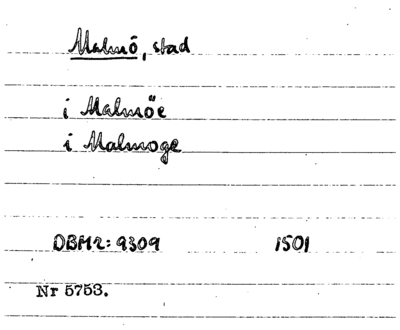 Malmö, stad
i Malmöe
i Malmoge
DBM2: 9309 1501
Nr 5753.